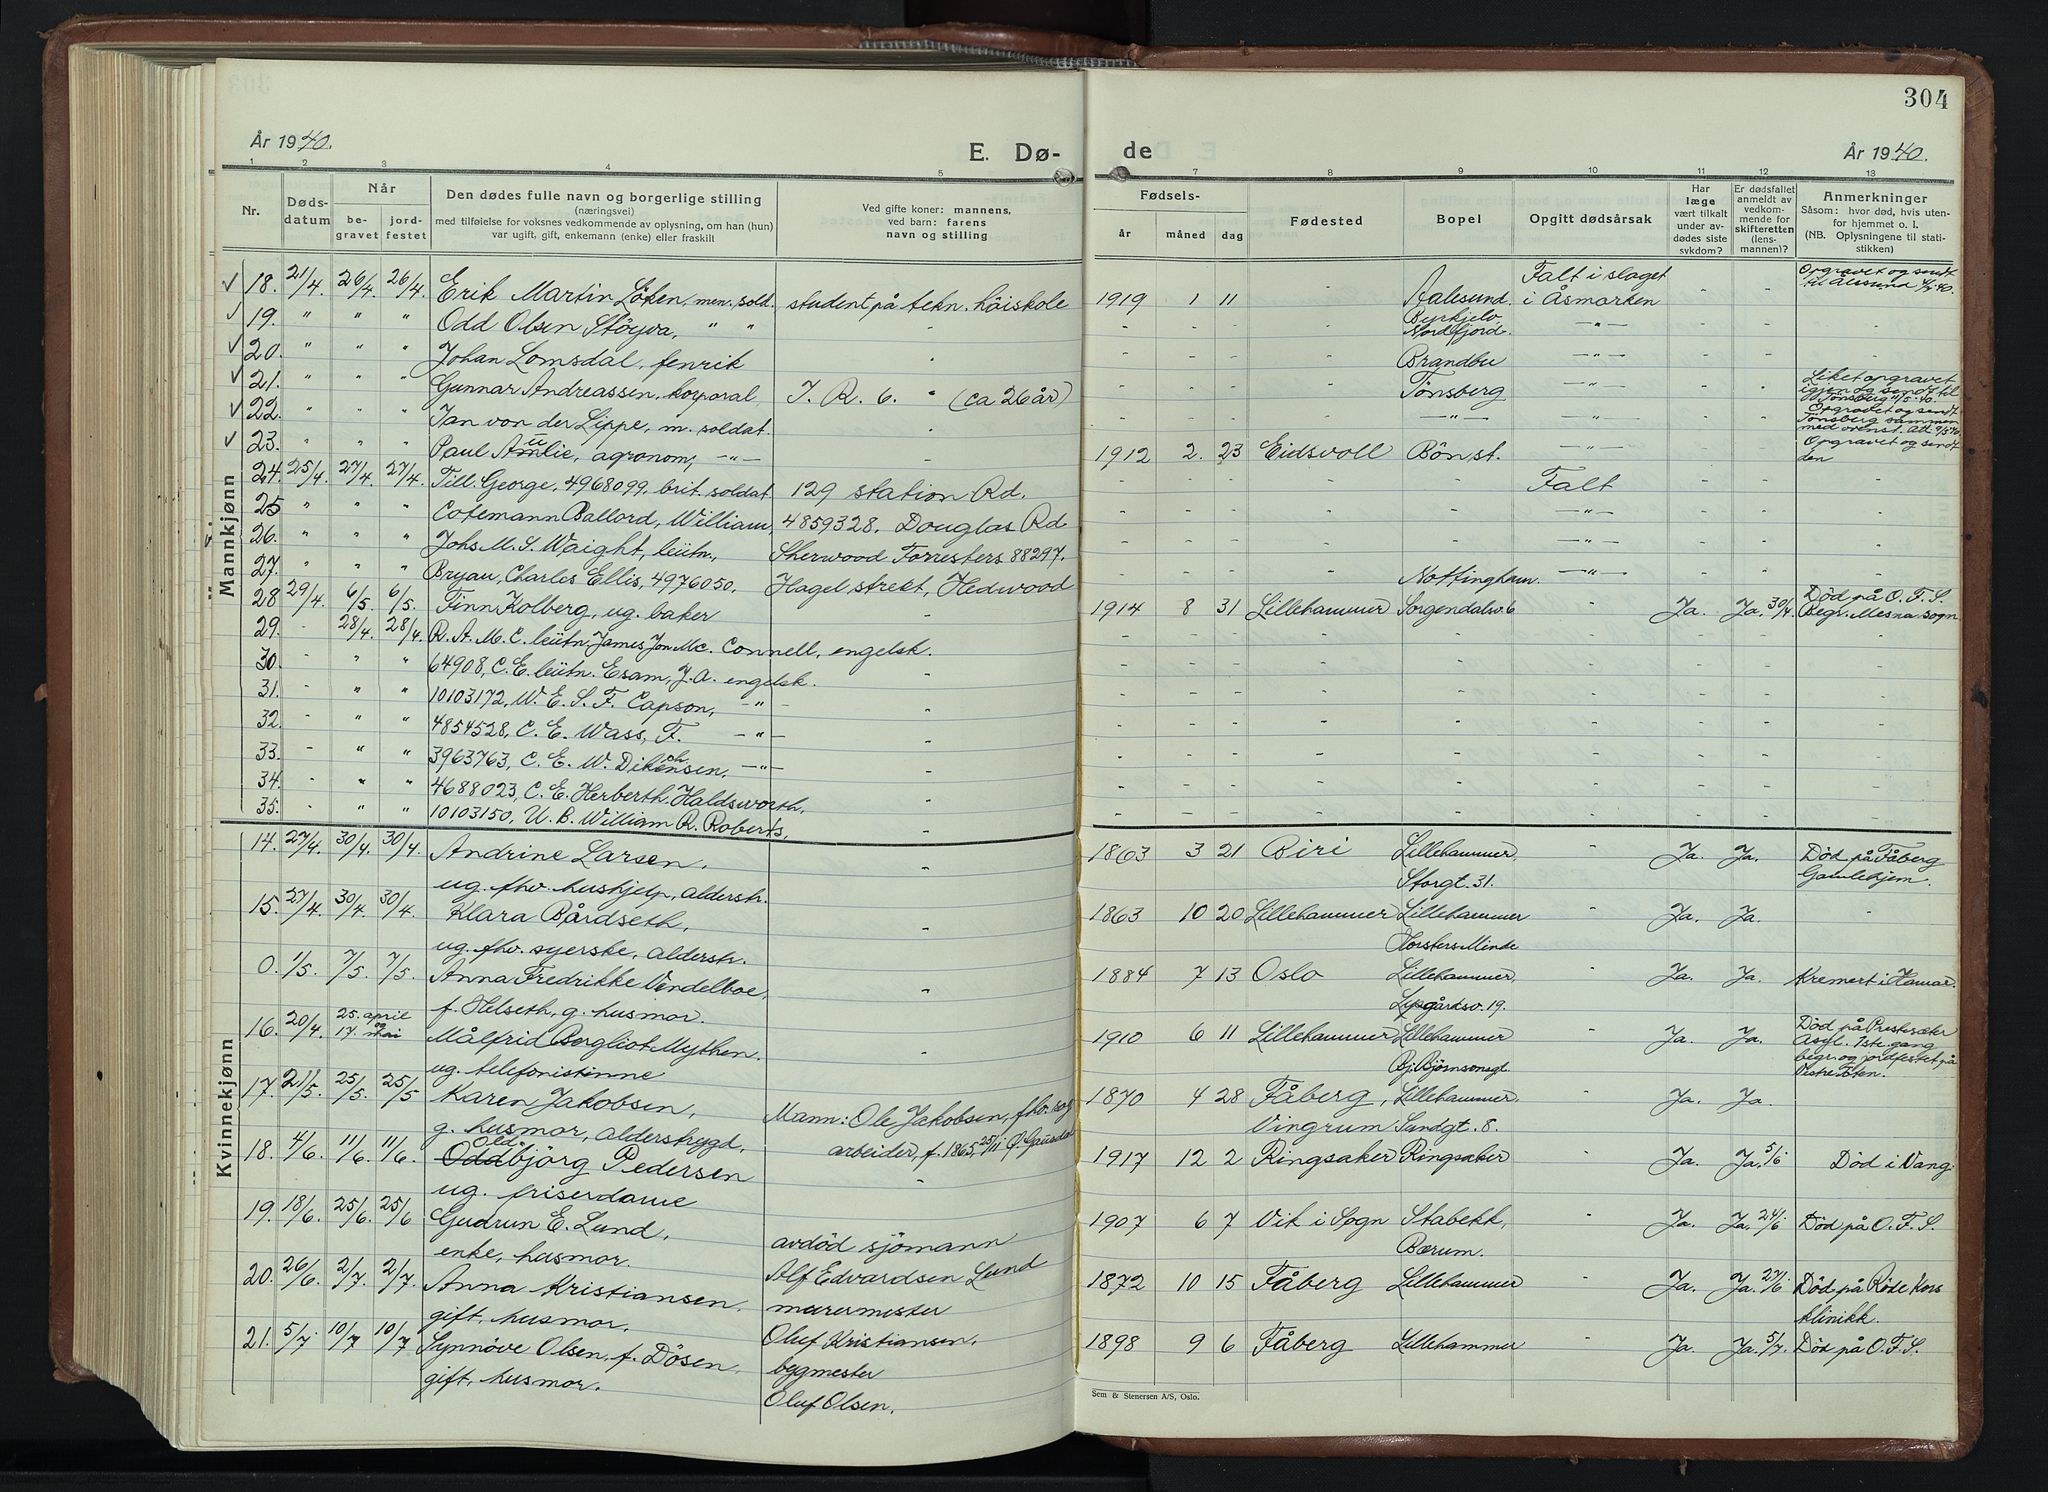 304
År 1940.
E. Dø-
de
År 1940.
1 2 3 4 5 7 8 9 10 11 12 13
Nr.
Døds-
datum
Når
be-
gravet
jord-
festet
Den dødes fulle navn og borgerlige stilling
(næringsvei)
med tilføielse for voksnes vedkommende av oplysning, om han (hun)
var ugift, gift, enkemann (enke) eller fraskilt
Ved gifte koner: mannens,
ved barn: farens
navn og stilling
Fødsels-
år måned dag
Fødested
Bopel
Opgitt dødsårsak
Har
læge
vært tilkalt
under av-
dødes siste
sykdom?
Er dødsfallet
anmeldt av
vedkom-
mende for
skifteretten
(lens-
mannen)?
Anmerkninger
Såsom: hvor død, hvis uten-
for hjemmet o. l.
(NB. Oplysningene til stati-
stikken)
Mannkjønn
✓ 18. 21/4. 26/4. 26/4. Erik Martin Löken, men. sold. student på tekn. höiskole 1919 1 11 - Aalesund Falt i slaget i Åsmarken - - Opgravet og sendt til Ålesund
✓ 19. " " " Odd Olsen Stöyva, " " - - - - - Byrkjelo Nordfjord. -"- - - -
✓ 20. " " " Johan Lomsdal, fenrik - - - - - Brandbu -"- - - -
✓ 21. " " " Gunnar Andreassen, korporal I. R. 6. " (ca 26 år) - - - - Tønsberg -"- - - Liket opgravet igjen og sendt til Tönsberg 11/5-40.
✓ 22. " " " Jan von der Lippe, m. soldat. - - - - -"- -"- - - Opgravet og sendt Tönsberg sammen med ovenst.
✓ 23. " " " Paul Amlie, agronom, -"- - 1912 2. 23 Eidsvoll Bön st. -"- - - Opgravet og sendt den
24. 25/4. 27/4. 27/4. Till. George, 4968099, brit. soldat 129 station Rd. - - - - - Falt - - -
25 " " " Cotemann Ballord, William, 4859328. Douglas Rd - - - - - -"- - - -
26. " " " Johs M. S. Waight, leütn., Sherwood Forresters 88297. - - - - - -"- - - -
27. " " " Bryan, Charles Ellis, 4976050. Hagel strekt, Hedwood - - - - Nottingham. -"- - - -
28 29/4. 6/5. 6/5. Finn Kolberg, ug. baker - 1914 8 31 Lillehammer Sorgendalsv. 6 - Ja. Ja. 30/4. Død på O. F. S. Begr. Mesna sogn
29. - 28/4. 28/4. R. A. M. C. leütn. James Jon Mc. Connell, engelsk.
30. - " " 64908, C. E. leütn. Esam, J. A. engelsk.
31. - " " 10103172, W. E. S. F. Capson, -"-
32. - " " 4854528, C. E. Wass, F. -"-
33. - " " 3963763, C. E. W. Dikensen, -"-
34. - " " 4688023, C. E. Herberth Haldsworth,
35. - " " 10103150, U. B. William R. Roberts,
Kvinnekjønn
14. 27/4. 30/4. 30/4. Andrine Larsen, - 1863 3 21 Biri Lillehammer, - Ja. Ja. Död på Fåberg
ug. fhv. hushjelp, alderstr. Storgt. 31. Gamlehjem.
15. 27/4. 30/4. 30/4. Klara Bårdseth, - 1863 10 20 Lillehammer Lillehammer - Ja. Ja. -
ug. fhv. syerske, alderstr. Minde
0. 1/5. 7/5. 7/5. Anna Fredrikke Vendelboe, - 1884 7 13 Oslo Lillehammer, - Ja. Ja. Kremert i Hamar.
f. Helseth, g. husmor. Lysgårdsv. 19.
16. 20/4. 25. april og 17. mai Målfrid Bergliot Mythen. - 1910 6 11 Lillehammer Lillehammer - Ja. Ja. Död på Presteseter Asyl. 1ste. gang
ug. telefonistinne Bj. Björnsonsgt. begr. og jordfestet på Vestre Toten.
17. 21/5. 25/5. 25/5 Karen Jakobsen, Mann: Ole Jakobsen, fhv. 1870 4 28 Fåberg, Lillehammer. - Ja. Ja.
g. husmor, alderstrygd, arbeider, f. 1865, 25/11 Ö. Gausdal Vingrum Sundgt. 8.
18. 4/6. 11/6. 11/6. Oldbjörg Pedersen - 1917 12 2 Ringsaker Ringsaker - Ja. Ja. 5/6 Död i Vang.
ug. friserdame
19. 18/6. 25/6. 25/6 Gudrun E. Lund, 1907 6 7 Vik i Sogn Stabekk, - Ja. Ja. 24/6 Död på O. F. S.
enke, husmor. avdöd sjömann Bærum.
20. 26/6. 2/7. 2/7. Anna Kristiansen. Alf Edvardsen Lund 1872 10 15 Fåberg Lillehammer - Ja. Ja. 27/6 Död på Röde Kors
gift, husmor. murermester klinikk.
21. 5/7. 10/7. 10/7 Synnöve Olsen, f. Dösen, Oluf Kristiansen, 1898 9 6 Fåberg Lillehammer - Ja. Ja. 5/7. Död på O. F. S.
gift, husmor. bygmester
Oluf Olsen.
Sem & Stenersen A/S, Oslo.